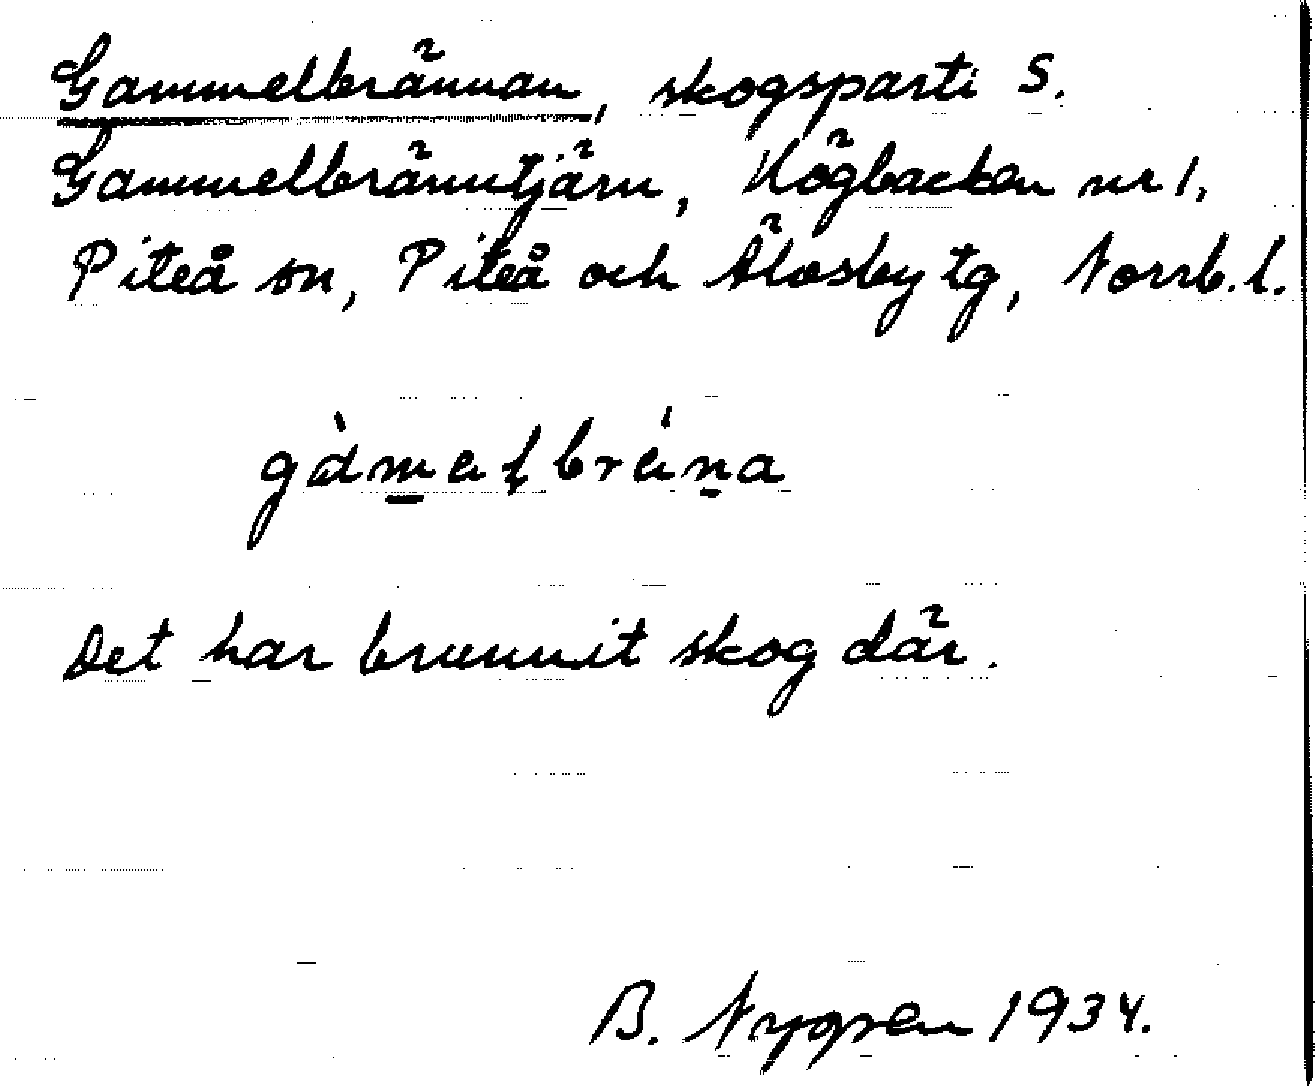 Gammelbrännan, skogsparti S.
Gammelbränntjärn, Högbacken nr 1,
Piteå sn, Piteå och Älvsby tg, Norrb. l.
Det har brunnit skog där.
B. Nygren 1934.